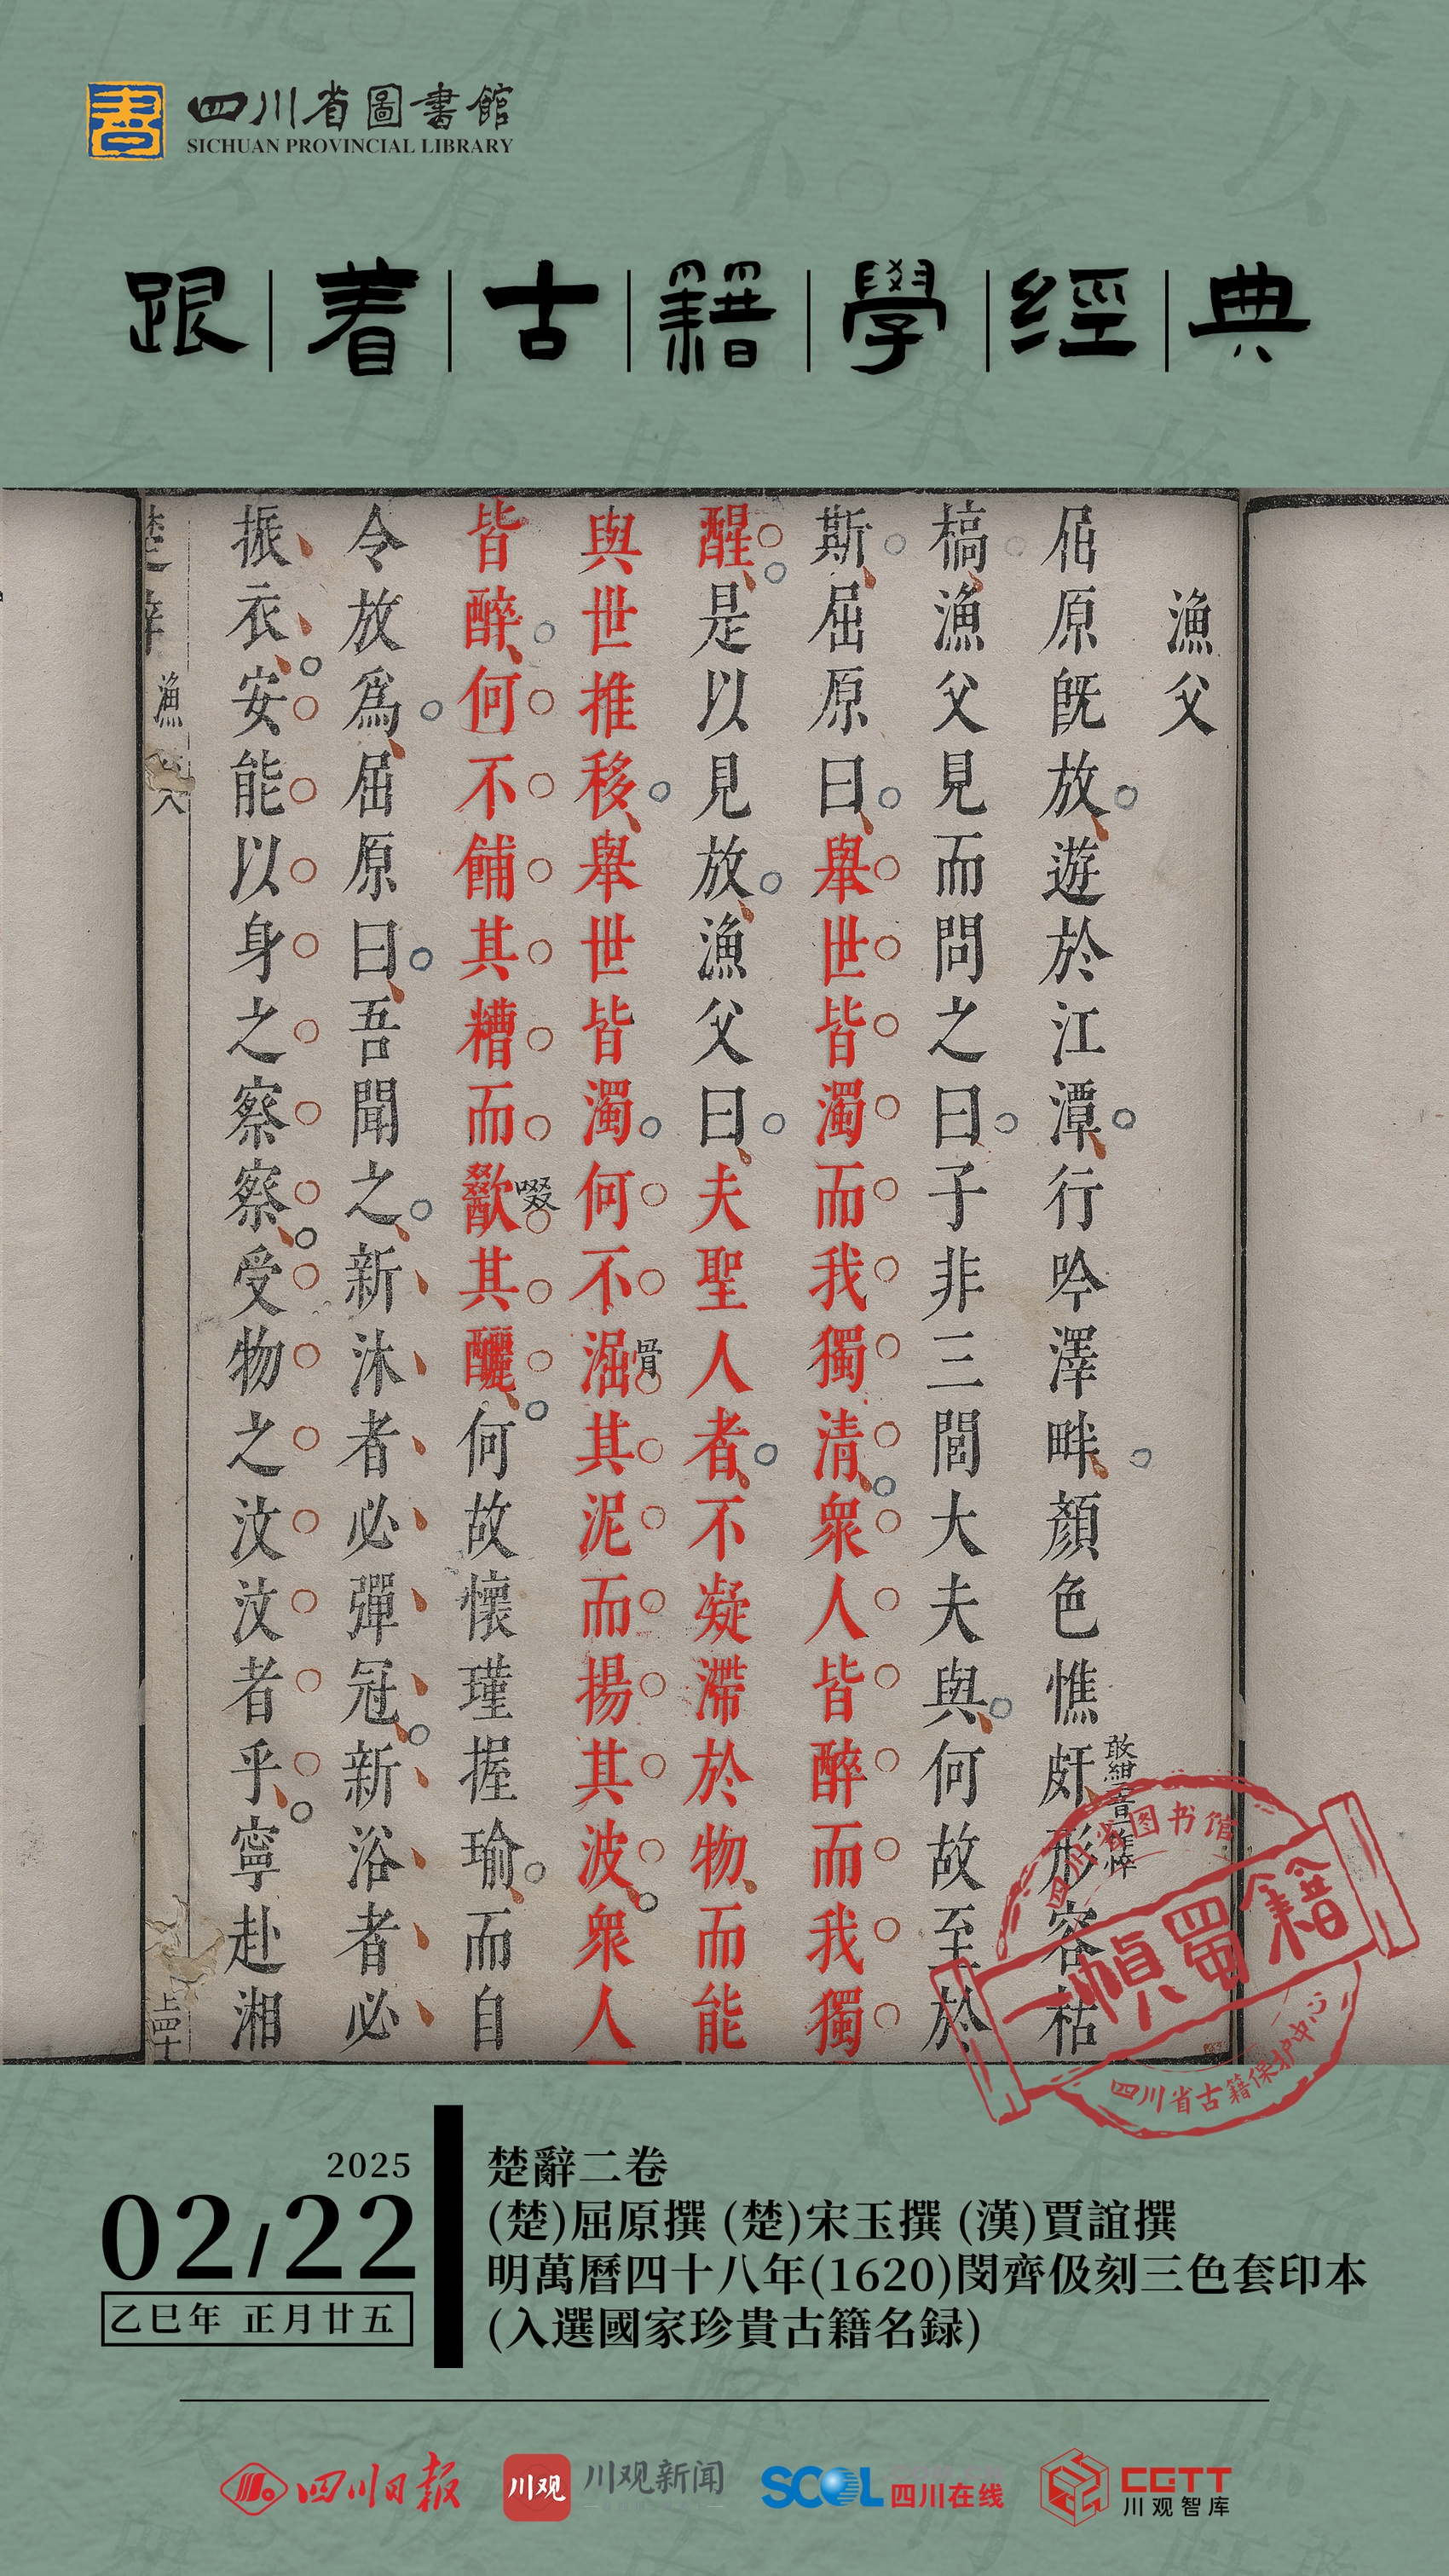 四川省圖書館
SICHUAN PROVINCIAL LIBRARY
跟着古籍學經典
漁父
屈原既放遊於江潭行吟澤畔顏色憔
敢紺音一作悴
顇形容枯
槁漁父見而問之曰子非三閭大夫與何故至於
斯屈原曰舉世皆濁而我獨清衆人皆醉而我獨
醒是以見放漁父曰夫聖人者不凝滯於物而能
與世推移舉世皆濁何不淈其泥而揚其波衆人
骨
皆醉何不餔其糟而歠其釃何故懷瑾握瑜而自
啜
令放為屈原曰吾聞之新沐者必彈冠新浴者必
振衣安能以身之察察受物之汶汶者乎寧赴湘
楚辭 漁父
上四十
四川省图书馆
一幀蜀籍
四川省古籍保护中心
2025
02/22
乙巳年 正月廿五
楚辭二卷
(楚)屈原撰 (楚)宋玉撰 (漢)賈誼撰
明萬曆四十八年(1620)閔齊伋刻三色套印本
(入選國家珍貴古籍名録)
四川日报
川观
川观新闻
SCOL
四川在线
CGTT
川观智库